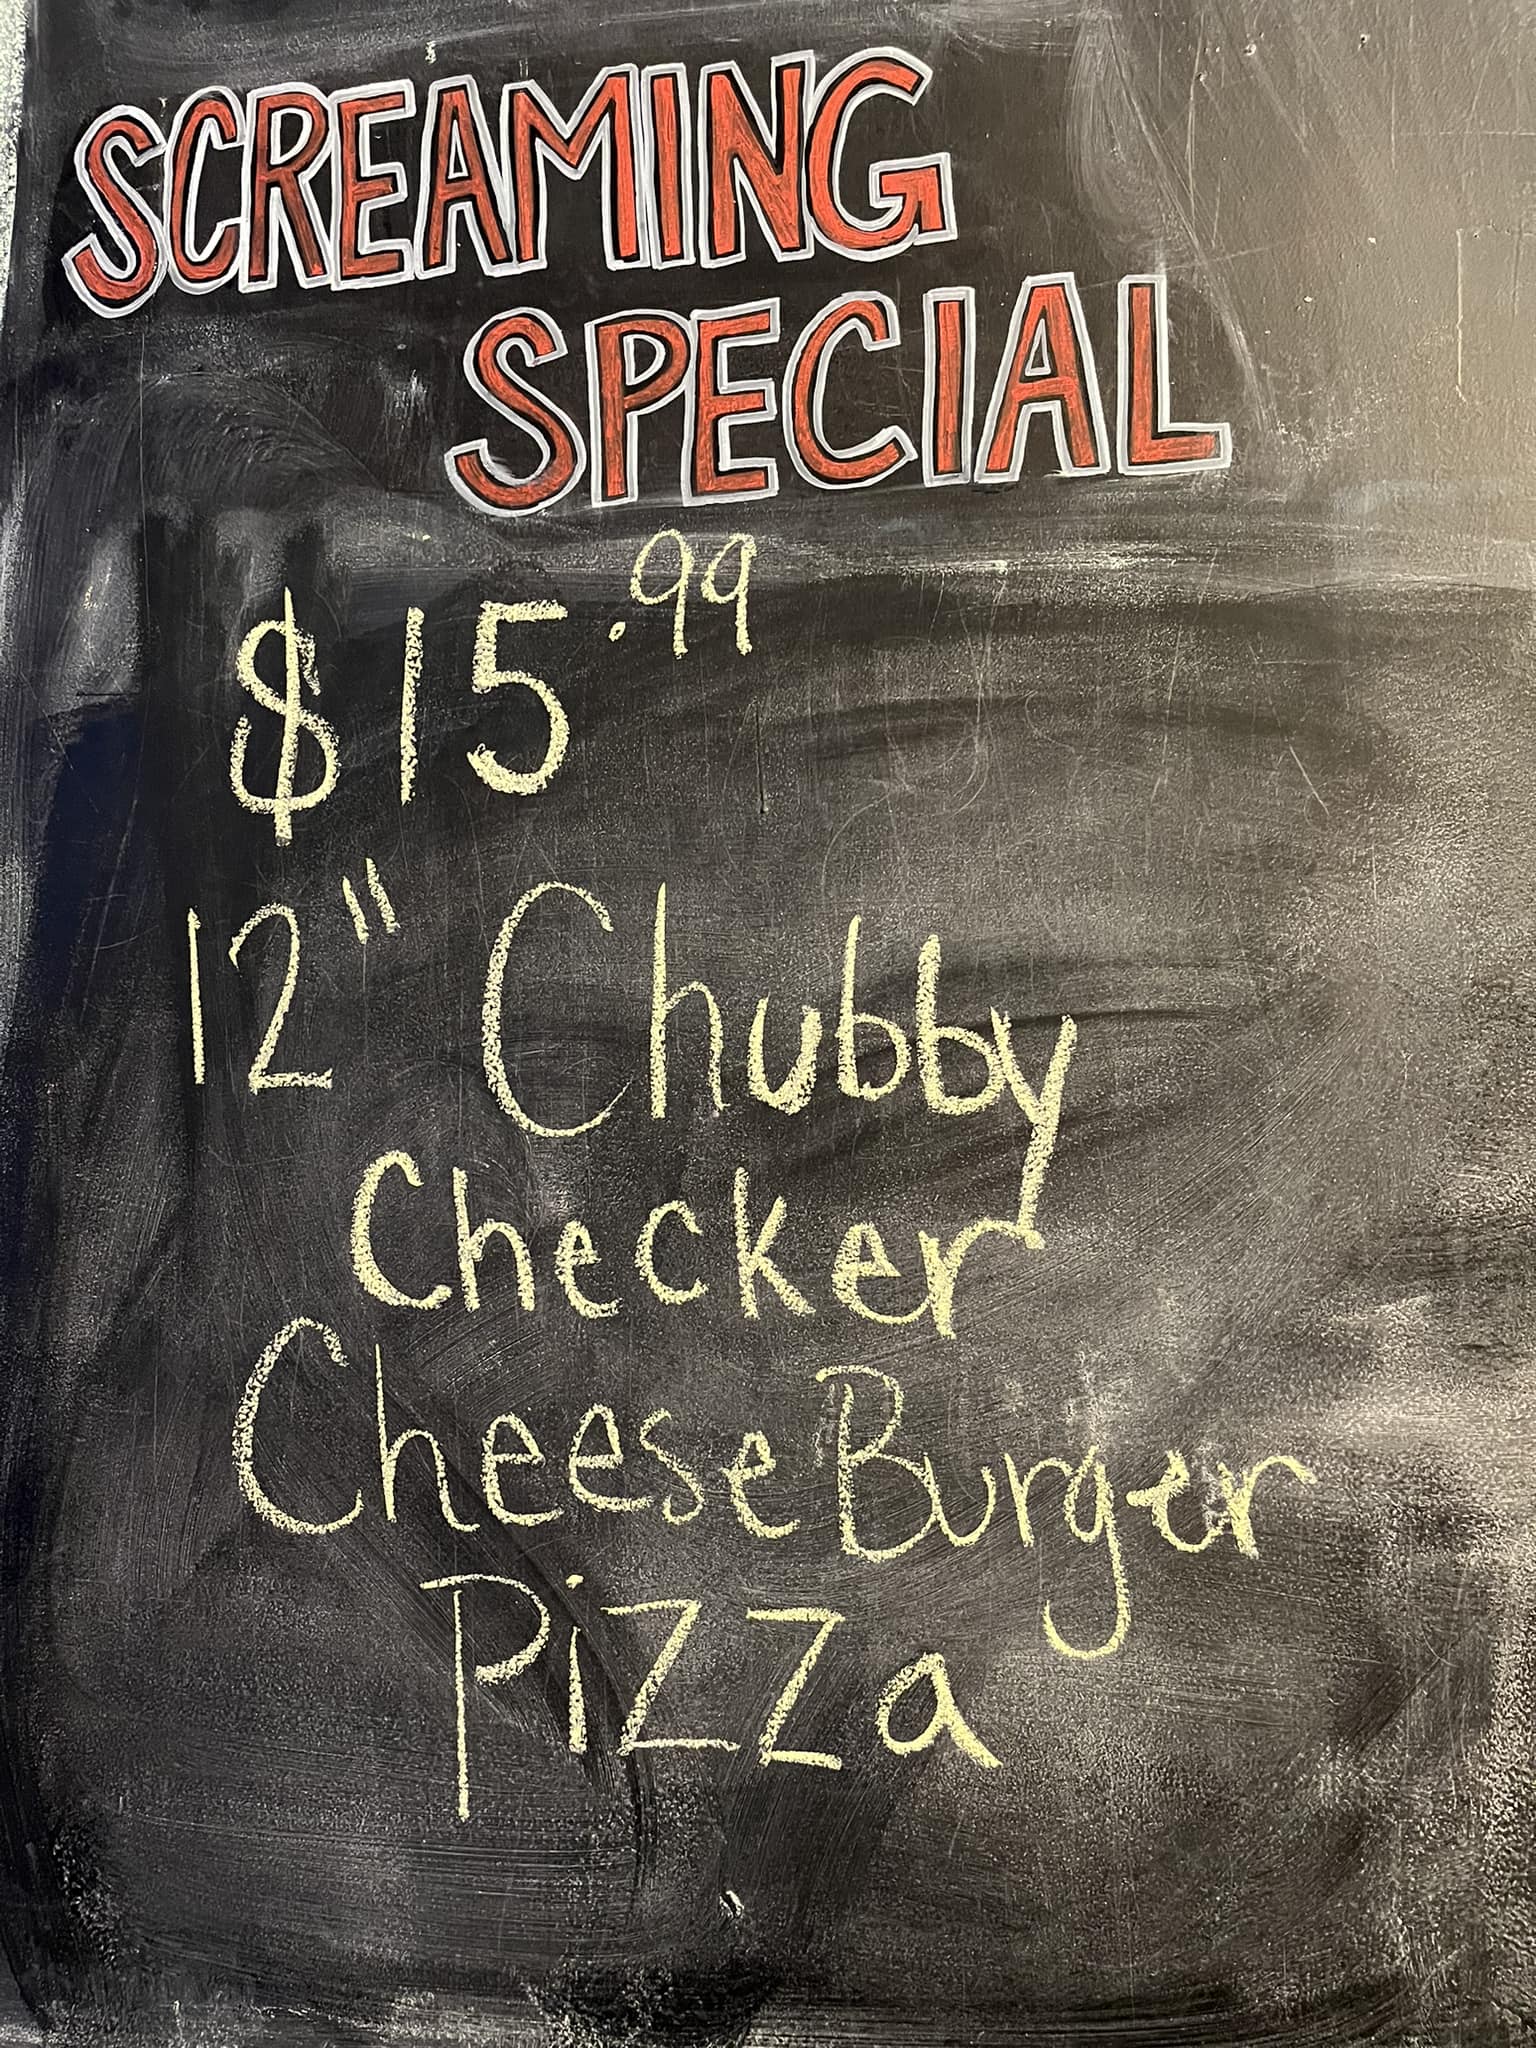 SCREAMING
SPECIAL
$15.99
12" Chubby
Checker
CheeseBurger
Pizza